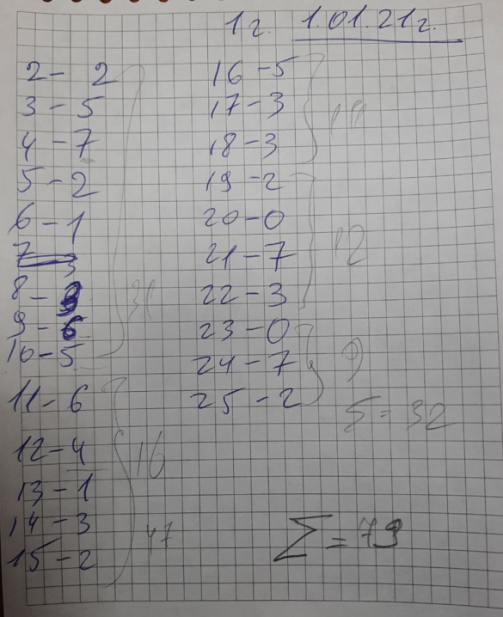 1 г. 1.01.21г.
2 - 2
3 - 5
4 - 7
5 - 2
6 - 1
8 - 3
9 - 6
10 - 5
31
11 - 6
12 - 4
13 - 1
14 - 3
15 - 2
16
47
16 - 5
17 - 3
18 - 3
11
19 - 2
20 - 0
21 - 7
22 - 3
12
23 - 0
24 - 7
25 - 2
9
S = 32
Σ = 79